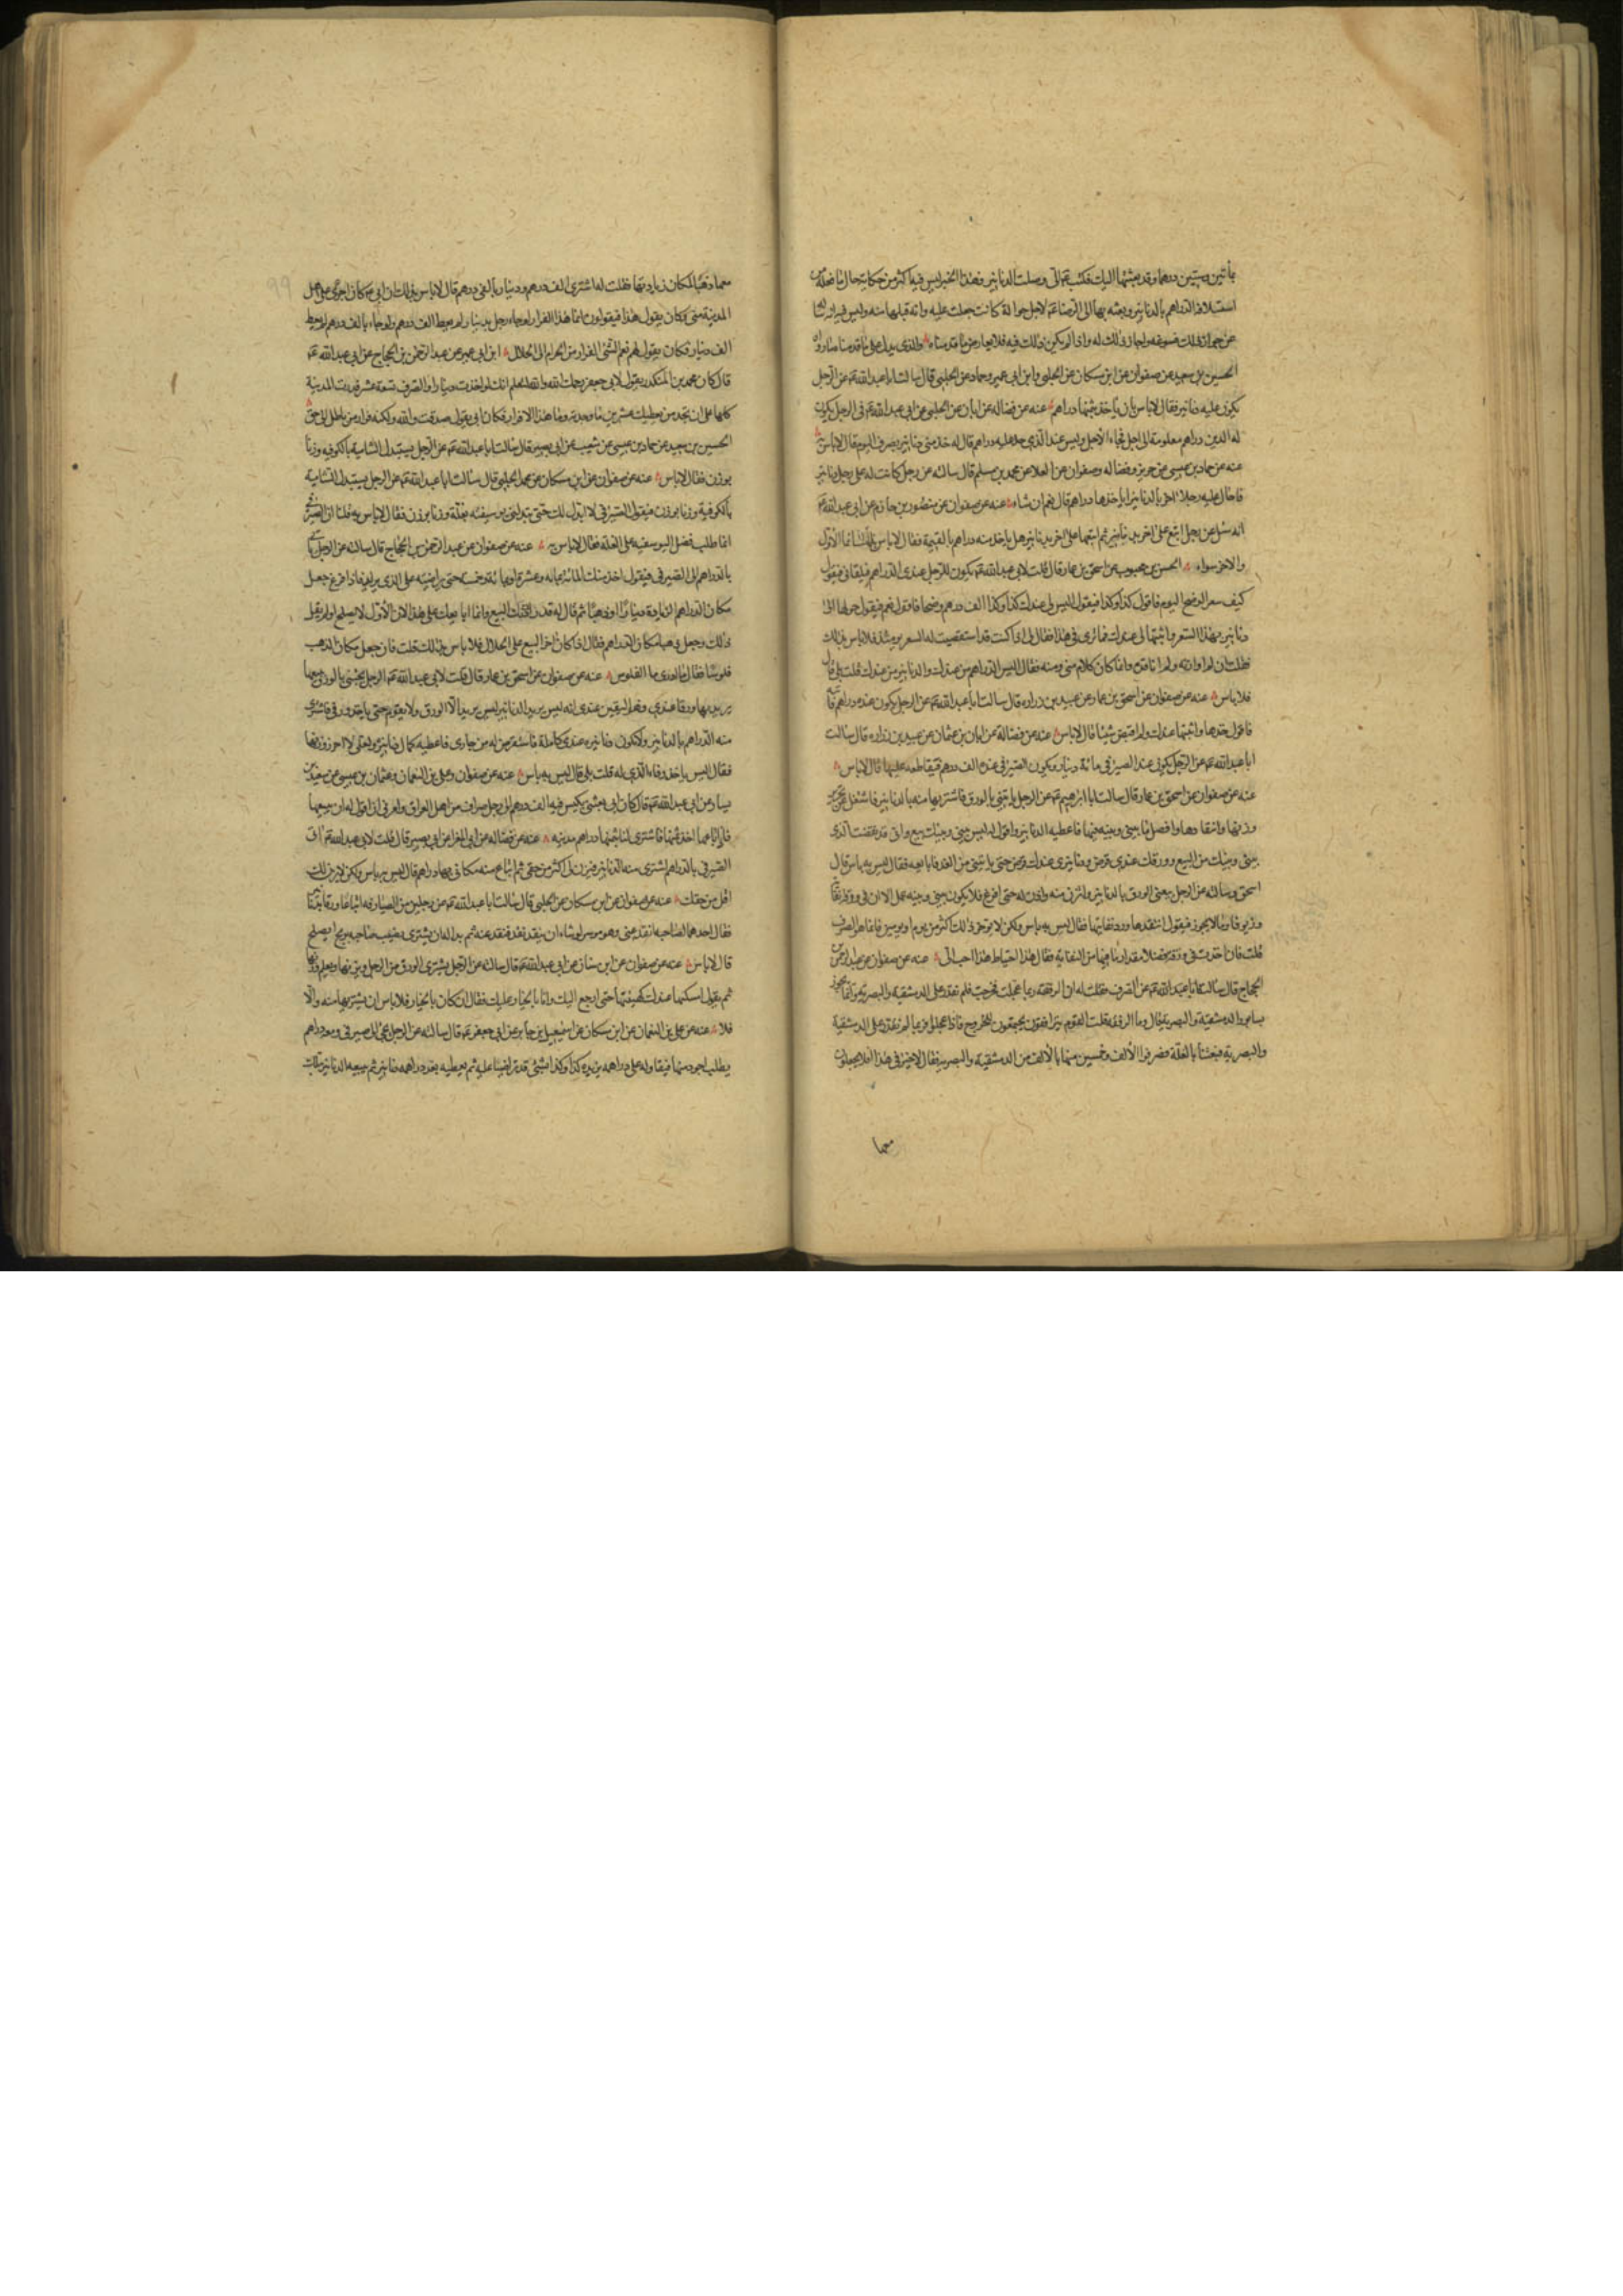 بمأتين وستين درهما وقد بعثتها اليك فكتب عَم الى وصلت الدنانير وهذا الخبر ليس فيه اكثر من حكاية حال ما فعله من
استسلاف الدراهم بالدنانير وبعثه بها الى الرضا عَم لاجل حوالة كانت جعلت عليه وانه قبلها منه وليس فيه انه
عن جواز ذلك فسوغه واجاز ذلك له واذا لم يكن ذلك فيه فلا يعارض ما قدمناه والذى يدل على ما قدمناه ما رواه
الحسين بن سعيد عن صفوان عن ابن مسكان عن الحلبى وابن ابى عمير وحماد عن الحلبى قال سالت ابا عبد الله عَم عن الرجل
يكون عليه دنانير فقال لا باس بان ياخذ بثمنها دراهم عنه عن فضاله عن ابان عن الحلبى عن ابى عبد الله عَم فى الرجل يكون
له الدين دراهم معلومة الى اجل فجاء الاجل وليس عند الذى حل عليه دراهم قال له خذ منى دنانير بصرف اليوم قال لا باس به
عنه عن حماد بن عيسى عن حريز وفضاله وصفوان عن العلا عن محمد بن مسلم قال سالته عن رجل كانت له على رجل دنانير
فاحال عليه رجلا اخر بالدنانير اياخذها دراهم قال نعم ان شاء عنه عن صفوان عن منصور بن حازم عن ابى عبد الله عَم
انه سئل عن رجل اتبع على اخر بدنانير ثم اتبعها على اخر بدنانير هل ياخذ منه دراهم بالقيمة فقال لا باس بذلك انما الاول
والاخر سواء الحسن بن محبوب عن اسحق بن عمار قال قلت لابى عبد الله عَم يكون للرجل عندى الدراهم فيلقانى فيقول
كيف سعر الوضح اليوم فاقول كذا وكذا فيقول اليس لى عندك كذا وكذا الف درهم وضحا فاقول نعم فيقول حولها الى
دنانير بهذا السعر واثبتها لى عندك فما ترى فى هذا فقال لى اذا كنت قد استقصيت له السعر يومئذ فلا باس بذلك
فقلت انى لم اوازنه ولم اناقده وانما كان كلام منى ومنه فقال اليس الدراهم من عندك والدنانير من عندك قلت بلى قال
فلا باس عنه عن صفوان عن اسحق بن عمار عن عبيد بن زراره قال سالت ابا عبد الله عَم عن الرجل يكون عنده دراهم فآتيه
فاقول خذها واثبتها عندك ولم اقبض شيئا قال لا باس عنه عن فضالة عن ابان بن عثمان عن عبيد بن زراره قال سالت
ابا عبد الله عَم عن الرجل يكون عند الصيرفى مائة دينار ويكون للصيرفى عنده الف درهم فيقاطعه عليها قال لا باس
عنه عن صفوان عن اسحق بن عمار قال سالت ابا ابرهيم عَم عن الرجل ياتينى بالورق فاشتريها منه بالدنانير فاشتغل عن تحرير
وزنها وانتقادها وفضل ما بينى وبينه فيها فاعطيه الدنانير واقول له ليس بينى وبينك بيع وانى قد نقضت الذى
بينى وبينك من البيع وورقك عندى قرض ودنانيرى عندك قرض حتى ياتينى من الغد فابايعه فقال ليس به باس قال
اسحق وسالته عن الرجل يبيعنى الورق بالدنانير واتزن منه وازن له حتى افرغ فلا يكون بينى وبينه عمل الا ان فى ورقه نفاية
وزيوفا وما لا يجوز فيقول انتقدها ورد نفايتها فقال ليس به باس ولكن لا توخر ذلك اكثر من يوم او يومين فانما هو الصرف
قلت فان اخذت فى ورقه فضلا مقدار ما فيها من النفاية فقال هذا احتياط هذا احب الى عنه عن صفوان عن عبد الرحمن بن
الحجاج قال سالت ابا عبد الله عَم عن الصرف فقلت له ان الرفقة ربما عجلت فخرجت فلم نقدر على الدمشقية والبصرية وانما يجوز
بسابور الدمشقية والبصرية فقال وما الرفقة قلت القوم يترافقون يجتمعون للخروج فاذا عجلوا فربما لم نقدر على الدمشقية
والبصرية فبعثنا بالغلة فصرفوا الالف وخمسين منها بالالف من الدمشقية والبصرية فقال لا خير فى هذا افلا يجعلون
معها
معها ذهبا لمكان زيادتها فقلت له اشترى الف درهم ودينار بالفى درهم قال لا باس بذلك ان ابى عَم كان اجرى على اهل
المدينة منى وكان يقول هذا فيقولون انما هذا الفرار لو جاء رجل بدينار لم يعط الف درهم ولو جاء بالف درهم لم يعط
الف دينار فكان يقول لهم نعم الشئ الفرار من الحرام الى الحلال ابن ابى عمير عن عبد الرحمن بن الحجاج عن ابى عبد الله عَم
قال كان محمد بن المنكدر يقول لابى جعفر رحمك الله والله انا لنعلم انك لو اخذت دينارا والصرف تسعة عشر فدرت المدينة
كلها على ان تجد من يعطيك عشرين ما وجدته وما هذا الا فرار فكان ابى يقول صدقت والله ولكنه فرار من باطل الى حق
الحسين بن سعيد عن حماد بن عيسى عن شعيب عن ابى بصير قال سالت ابا عبد الله عَم عن الرجل يستبدل الشامية بالكوفيه وزنا
بوزن فقال لا باس عنه عن صفوان عن ابن مسكان عن محمد الحلبى قال سالت ابا عبد الله عَم عن الرجل يستبدل الشامية
بالكوفية وزنا بوزن فيقول الصيرفى لا ابدل لك حتى تبدلنى يوسفيه بغلة وزنا بوزن فقال لا باس به فقلنا ان الصيرفى
انما طلب فضل اليوسفيه على الغلة فقال لا باس به عنه عن صفوان عن عبد الرحمن بن الحجاج قال سالته عن الرجل ياتى
بالدراهم الى الصيرفى فيقول اخذ منك المائة بمائة وعشرة او بمائة وخمسة حتى يراضيه على الذى يريد فاذا فرغ جعل
مكان الدراهم الزيادة دينارا او ذهبا ثم قال له قد راددتك البيع وانما ابايعك على هذا لان الاول لا يصلح او لم يقل
ذلك وجعل ذهبا مكان الدراهم فقال اذا كان اخر البيع على الحلال فلا باس بذلك قلت فان جعل مكان الذهب
فلوسا فقال ما ادرى ما الفلوس عنه عن صفوان عن اسحق بن عمار قال قلت لابى عبد الله عَم الرجل يجيئنى بالورق يبيعها
يريد بها ورقا عندى وهو اليقين عندى انه ليس يريد الدنانير ليس يريد الا الورق ولا يقوم حتى ياخذ ورقى فاشترى
منه الدراهم بالدنانير ولا يكون دنانيره عندى كاملة فاستقرض له من جارى فاعطيه كمال دنانيره ولعلى لا احرز وزنها
فقال اليس ياخذ وفاء الذى له قلت بلى قال ليس به باس عنه عن صفوان وعلى بن النعمان وعثمان بن عيسى عن سعيد بن
يسار عن ابى عبد الله عَم قال كان ابى بعثنى بكيس فيه الف درهم الى رجل صراف من اهل العراق وامرنى ان اقول له ان يبيعها
فاذا باعها اخذ ثمنها فاشترى لنا بثمنها دراهم مدينيه عنه عن فضاله عن ابى المغرا عن ابى بصير قال قلت لابى عبد الله عَم اتى
الصيرفى بالدراهم اشترى منه الدنانير فيزن لى اكثر من حقى ثم ابتاع منه مكانى بها دراهم قال ليس به باس ولكن لا يزن لك
اقل من حقك عنه عن صفوان عن ابن مسكان عن الحلبى قال سالت ابا عبد الله عَم عن رجلين من الصيارفه ابتاعا ورقا بدنانير
فقال احدهما لصاحبه انقد عنى وهو موسر لو شاء ان ينقد نقد فنقد عنه ثم بدا له ان يشترى نصيب صاحبه بربح ايصلح
قال لا باس عنه عن صفوان عن ابن سنان عن ابى عبد الله عَم قال سالته عن الرجل يشترى الورق من الرجل ويزنها ويعلم وزنها
ثم يقول امسكها عندك كهيئتها حتى ارجع اليك وانا بالخيار عليك فقال ان كان بالخيار فلا باس ان يشتريها منه والا
فلا عنه عن على بن النعمان عن ابن مسكان عن اسمعيل بن جابر عن ابى جعفر عَم قال سالته عن الرجل يجئ الى صيرفى ومعه دراهم
يطلب اجود منها فيقاوله على دراهمه يزيده كذا وكذا بشئ قد تراضيا عليه ثم يعطيه بعد دراهمه دنانير ثم يبيعه الدنانير بتلك